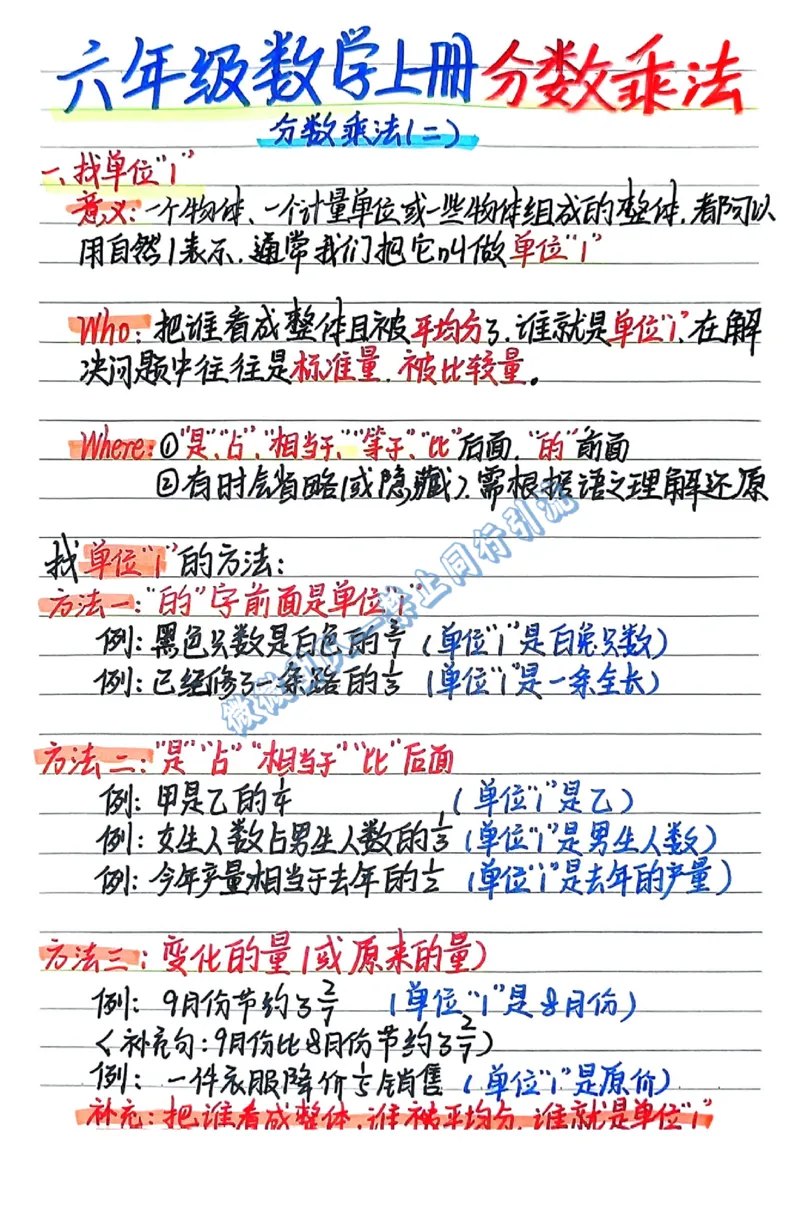 六年级数学上册分数乘法
分数乘法(二)
一、找单位"1"
意义:一个物体、一个计量单位或一些物体组成的整体,都可以
用自然1表示,通常我们把它叫做单位"1"
Who:把谁看成整体且被平均分了,谁就是单位"1",在解
决问题中往往是标准量,被比较量。
Where:①"是"、"占"、"相当于"、"等于"、"比"后面,"的"前面
②有时会省略(或隐藏),需根据语文理解还原
找单位"1"的方法:
方法一:"的"字前面是单位"1"
例:黑色只数是白色的3/7(单位"1"是白兔只数)
例:已经修了一条路的1/3(单位"1"是一条全长)
方法二:"是""占""相当于""比"后面
例:甲是乙的1/4 (单位"1"是乙)
例:女生人数占男生人数的1/3(单位"1"是男生人数)
例:今年产量相当于去年的1/2(单位"1"是去年的产量)
方法三:变化的量(或原来的量)
例:9月份节约了2/7 (单位"1"是8月份)
(补充句:9月份比8月份节约了2/7)
例:一件衣服降价1/5销售(单位"1"是原价)
补充:把谁看成整体,谁被平均分,谁就是单位"1"